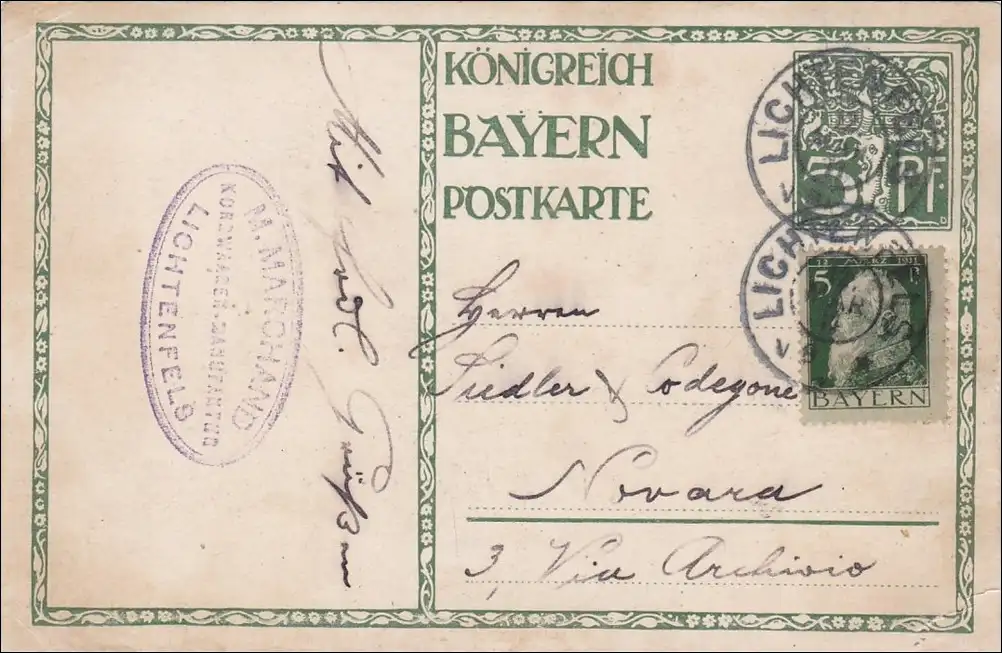 KÖNIGREICH
BAYERN
POSTKARTE
5 PF.
LICHTENFELS
LICHTENFELS
1911
5 P
BAYERN
M. MARCHAND
KORBWAAREN-MANUFAKTUR
LICHTENFELS
Mit
Grüßen
Herren
Siedler & Codegone
Novara
3, Via Archivio